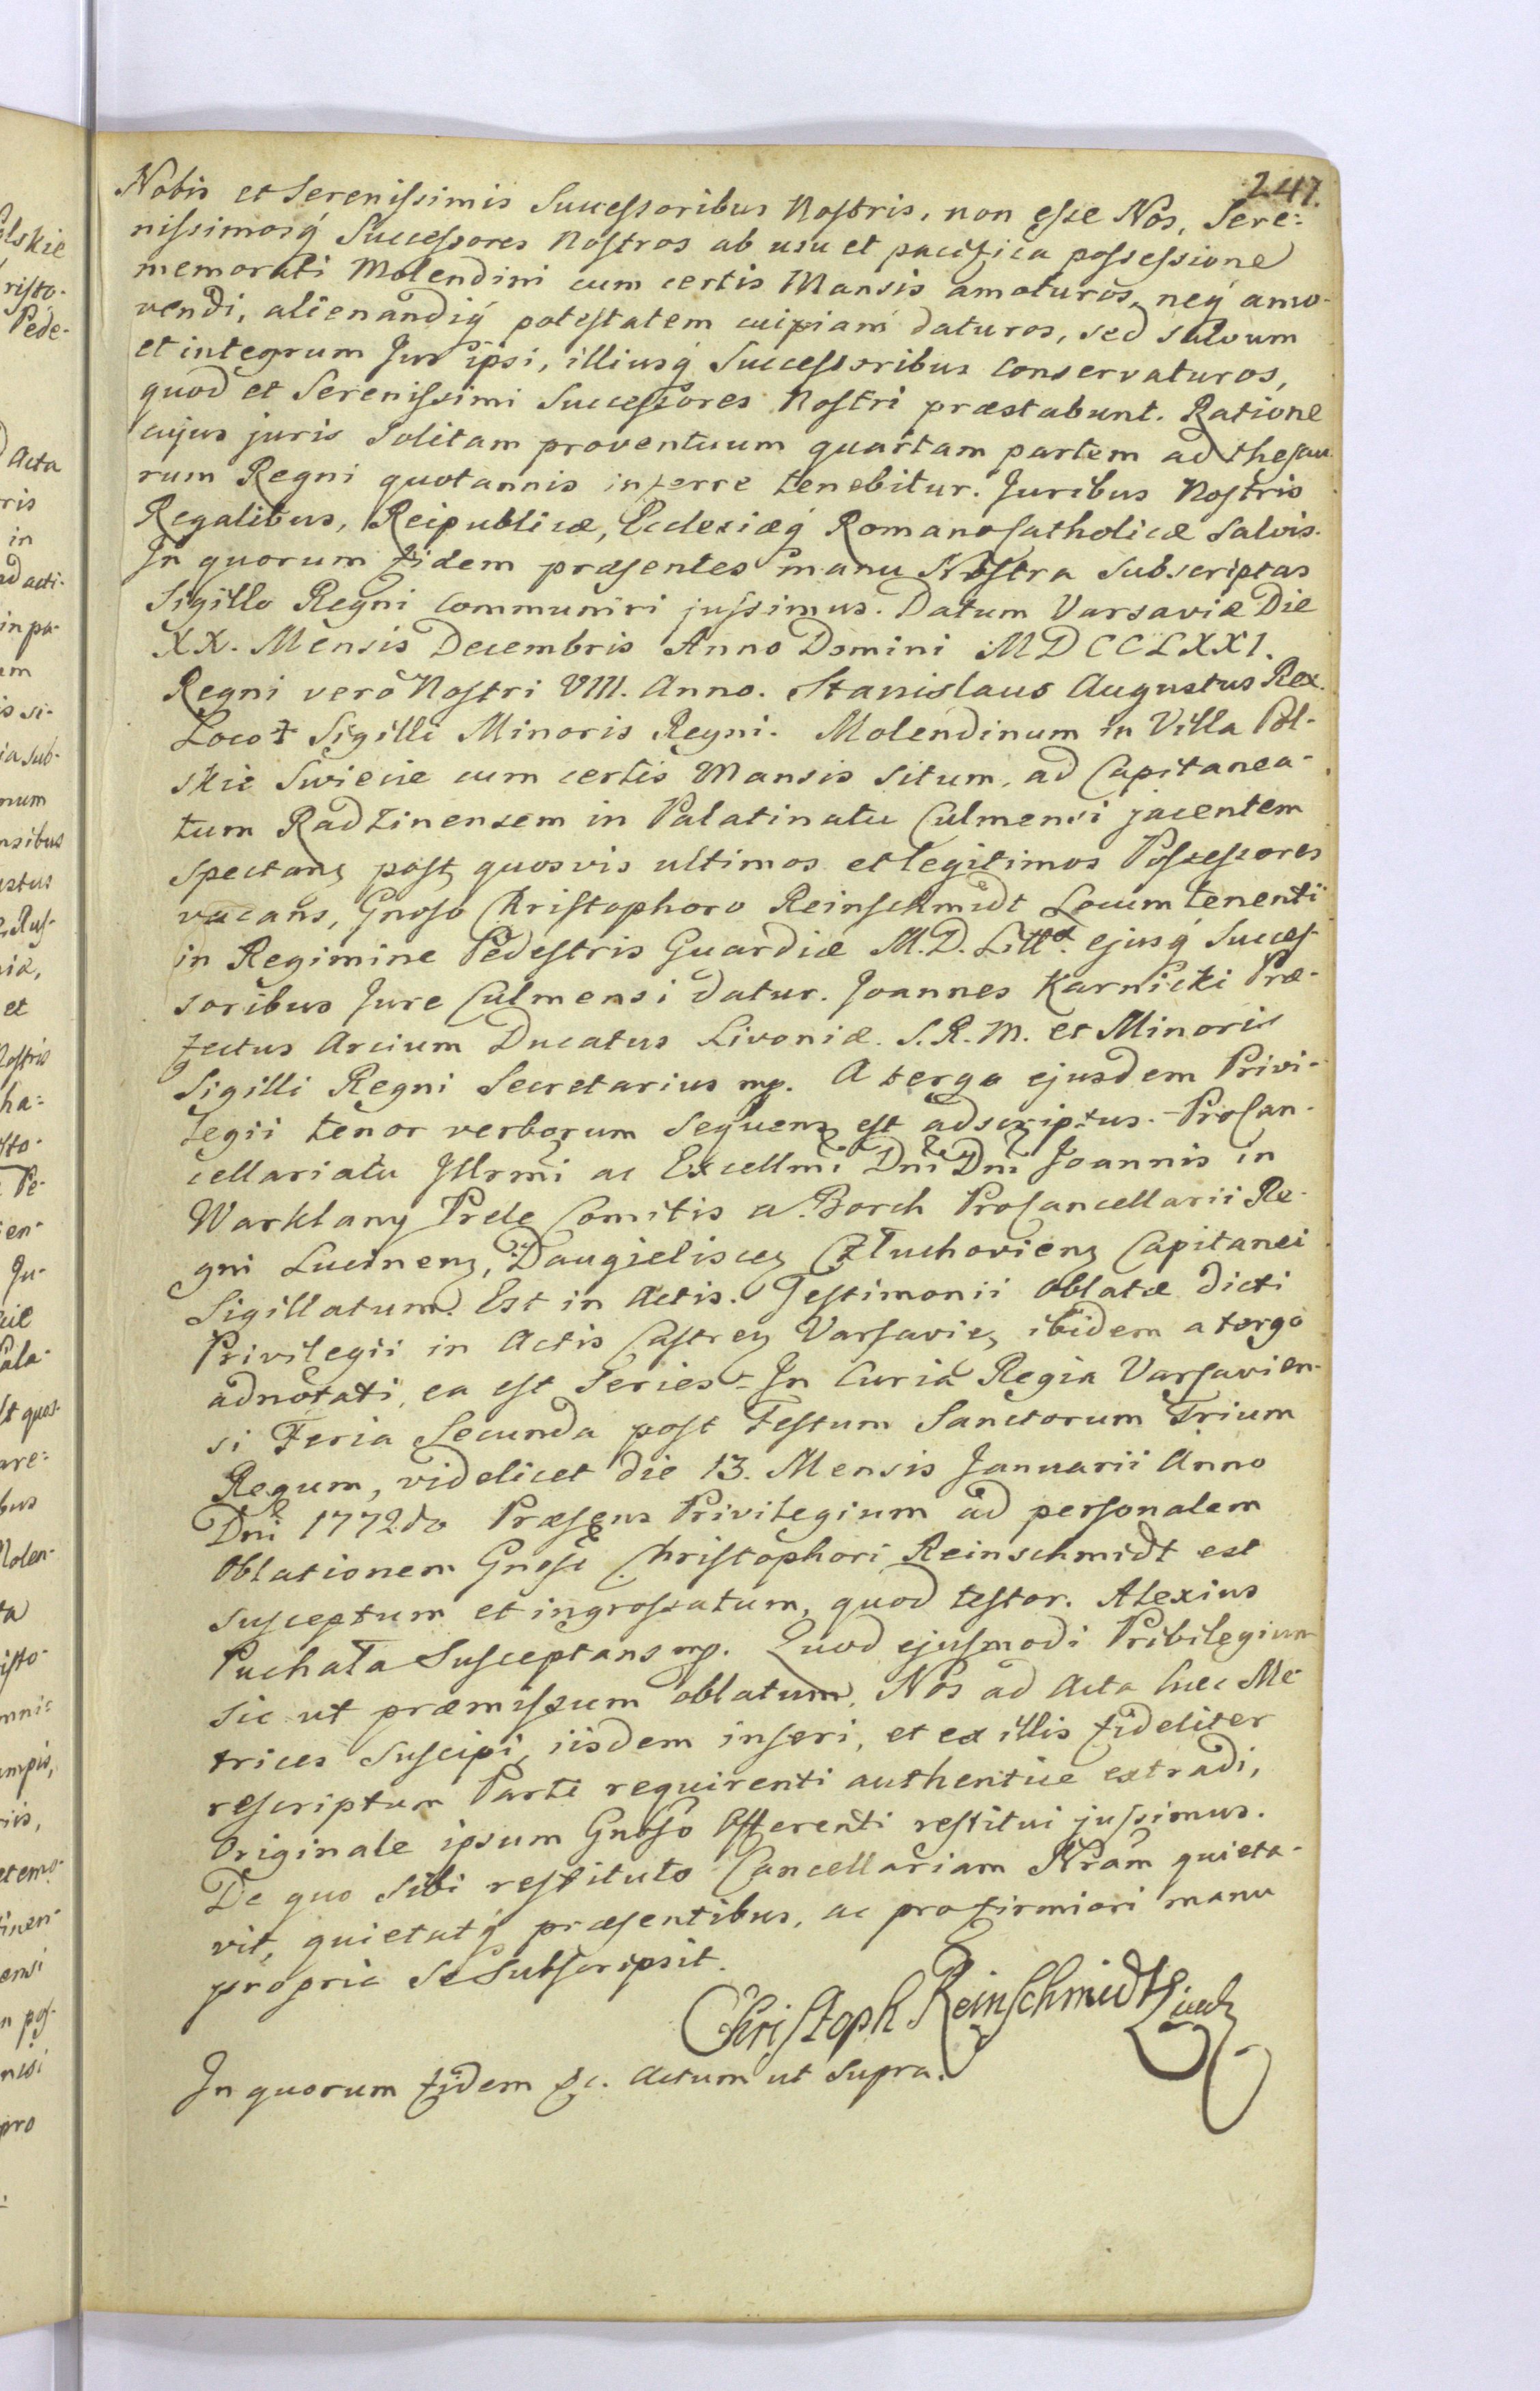 247.
Nobis et Serenissimis Successoribus Nostris, non esse Nos, Sere=
nissimosq́ Successores Nostros ab usu et pacifica possessione
memorati Molendini cum certis Mansis amoturos, neq́ amo-
vendi, alienandiq́ potestatem cuipiam daturos, sed salvum
et integrum Jus ipsi, illiusq́ Successoribus conservaturos,
quod et Serenissimi Successores Nostri præstabunt. Ratione
cujus juris Solitam proventuum quartam partem ad thesau
rum Regni quotannis inferre tenebitur. Juribus Nostris
Regalibus, Reipublicæ, Ecclesiæq́ Romano Catholicæ Salvis.
In quorum fidem præsentes manu Nostra Subscriptas
Sigillo Regni communiri jussimus. Datum Varsaviæ Die
XX. Mensis Decembris Anno Domini MDCCLXXI.
Regni verò Nostri VIII. Anno. Stanislaus Augustus Rex.
Loco ✝ Sigilli Minoris Regni. Molendinum in Villa Pol-
skie Swiecie cum certis Mansis situm, ad Capitanea-
tum Radzinensem in Palatinatu Culmensi jacentem
spectanȝ post quosvis ultimos et legitimos Possessores
vacans, Gnoso Christophoro Reinschmidt Locum tenenti
in Regimine Pedestris Guardiæ M. D. Littæ. ejusq́ Succes-
soribus Jure Culmensi datur. Joannes Karnicki Præ-
fectus Arcium Ducatus Livoniæ. S. R. M. et Minoris
Sigilli Regni Secretarius mp. A tergo ejusdem Privi-
legii tenor verborum sequenȝ est adscriptus. - ProCan-
cellariatu Jllrmi ac Excellmi Dni Dni Joannis in
Warklany Prele Comitis a Borch ProCancellarii Re-
gni Lucinenȝ, Daugielisceȝ Człuchovienȝ Capitanei
Sigillatum. Est in Actis. Testimonii Oblatæ dicti
Privilegii in Actis Castreȝ Varsavieȝ ibidem a tergo
adnotati, ea est Series - In Curia Regia Varsavien-
si Feria Secunda post Festum Sanctorum Trium
Regum, videlicet die 13. Mensis Januarii Anno
Dni 1772do Præsens Privilegium ad personalem
Oblationem Gnosi Christophori Reinschmidt est
susceptum et ingrossatum, quod testor. Alexius
Puchała Susceptans mp. Quod ejusmodi Pribilegium
sic ut præmissum oblatum, Nos ad Acta hæc Me-
trices Suscipi, iisdem inseri, et ex illis fideliter
rescriptum Parti requirenti authentice extradi,
Originale ipsum Gnoso Offerenti restitui jussimus.
De quo Sibi restituto Cancellariam Nram quieta-
vit, quietatq́ præsentibus, ac pro firmiori manu
propria se Subscripsit.
Christoph Reinschmidt
In quorum fidem &c. Actum ut Supra.